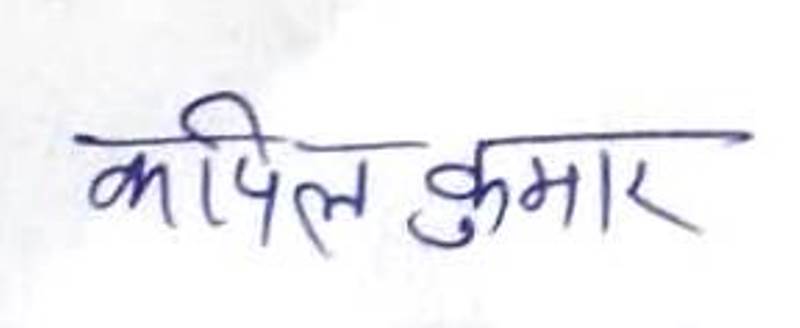 कपिल कुमार